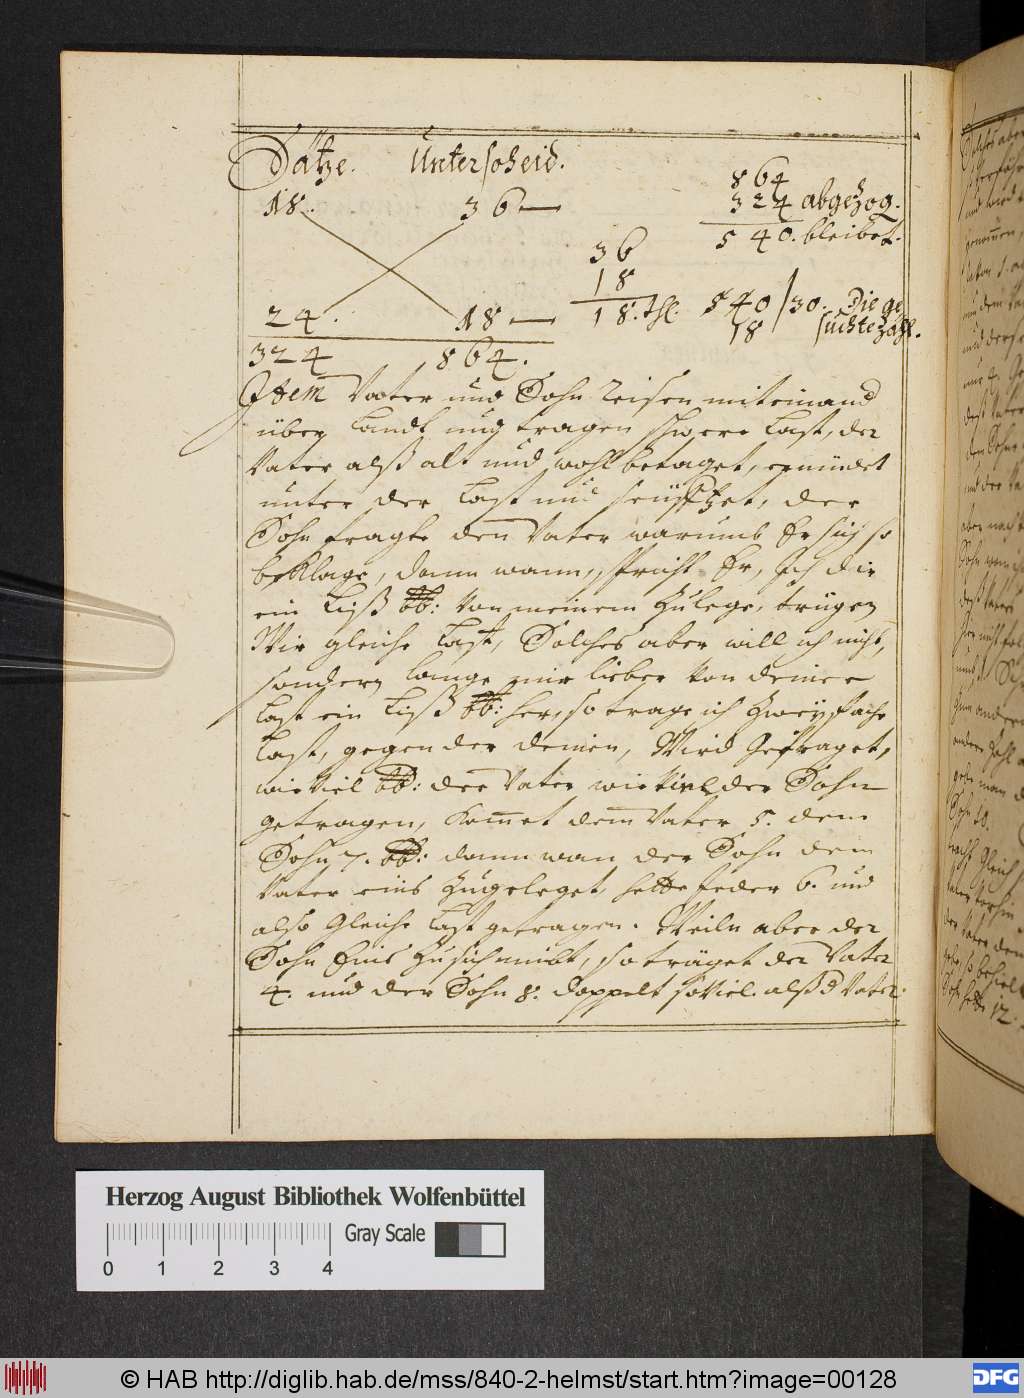 Sätze. Unterscheid.
18. 36 —
24. 18 —
324 864.
36
18
18. thl.
864
324 abgezog.
540. bleibet.
540 / 30. Die ge
18 suchte Zahl.
Item Vatter und Sohn reisen miteinand
über Landt und tragen schwere Last, der
Vater alß alt und wohl betaget, ermüdet
unter der Last und seüfftzet, der
Sohn fragte den Vater warumb Er sich so
beklage, dann wann, spricht Er, Ich dir
ein Liß ℔: von meinem Zulege, trügen
Wir gleiche Last, Solches aber will ich nicht,
sondern lange mir lieber von deiner
Last ein Liß ℔: her, so trage ich Zweyfache
Last, gegen der deinen, Wird Gefraget,
wie Viel ℔: der Vater wie Viel der Sohn
getragen, Komet dem Vater 5. dem
Sohn 7. ℔: dann wan der Sohn dem
Vater eins Zugeleget hette jeder 6. und
also Gleiche Last getragen. Weiln aber der
Sohn Eins Zu sich nimbt, so träget der Vater
4. und der Sohn 8. doppelt so Viel. alß d Vater.
Herzog August Bibliothek Wolfenbüttel
Gray Scale
0 1 2 3 4
© HAB http://diglib.hab.de/mss/840-2-helmst/start.htm?image=00128
DFG